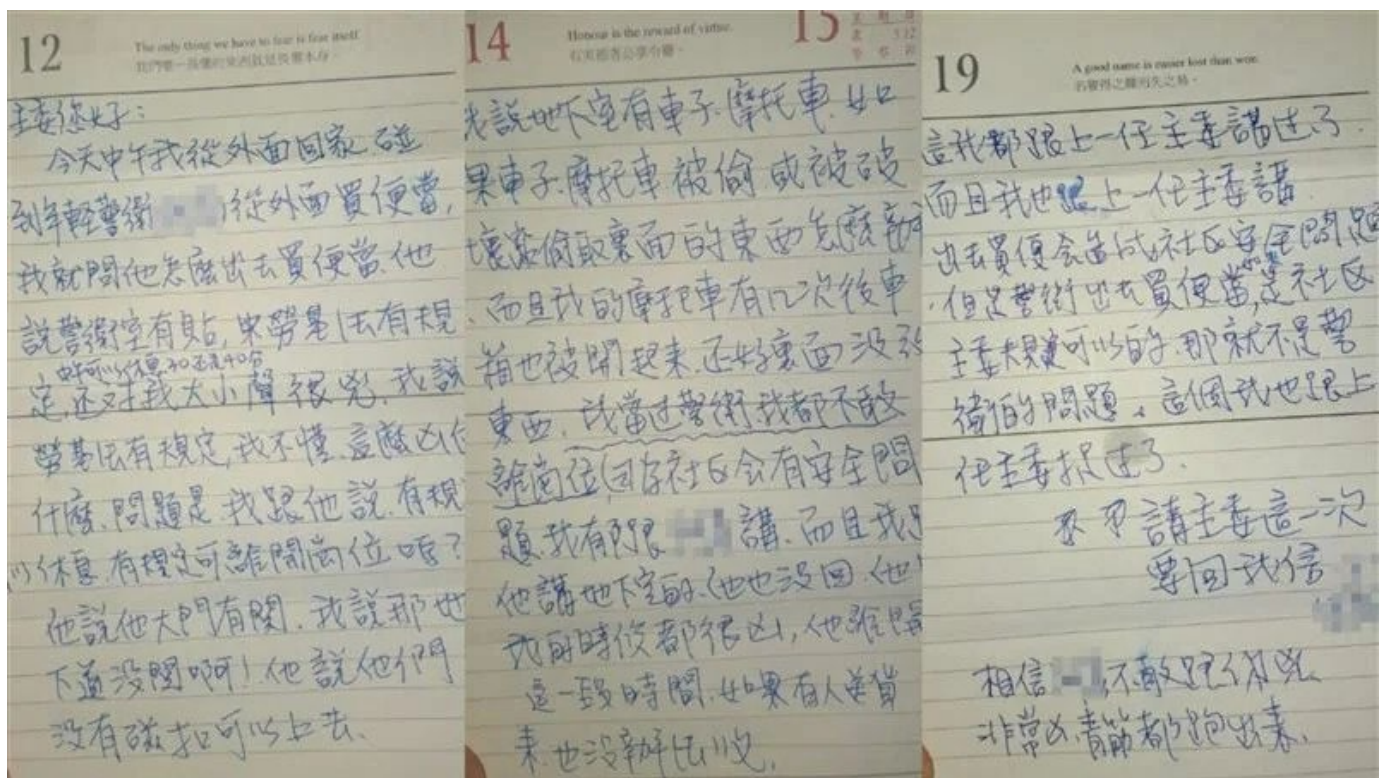 12
The only thing we have to fear is fear itself.
我們唯一恐懼的東西就是恐懼本身。
主委您好：
今天中午我從外面回家.碰
到年輕警衛從外面買便當,
我就問他怎麼出去買便當.他
說警衛室有貼,來勞基法有規
中午可以休息30還是40分
定,還對我大小聲很兇,我說
勞基法有規定,我不懂.這麼凶
什麼,問題是.我跟他說.有規
以休息,有規定可離開崗位嗎?
他說他大門有關.我說那地
下道沒關啊!他說他們
沒有磁扣可以上去.
14
Honour is the reward of virtue.
有美德者必享令譽。
15
我說地下室有車子.摩托車.如
果車子.摩托車被偷.或被破
壞.偷取裏面的東西怎麼辦
.而且我的摩托車有几次後車
箱也被開起來.还好裏面没放
東西.我當过警衛.我都不敢
離崗位(因为社区会有安全問
題.我有跟講.而且我
他講地下室的.他也没回.他
我的時候都很凶,他離開
這一段時間.如果有人送貨
來.也沒辦法收.
19
A good name is easier lost than won.
名譽得之難而失之易。
這我都跟上一任主委講过了.
而且我也跟上一任主委講
出去買便会造成社区安全問題
.但是警衛出去買便當,是社区
主委可以的.那就不是警
衛的問題。這個我也跟上
任主委提过了.
請主委這一次
要回我信
相信不敢跟你兇.
非常凶.青筋都跑出來.